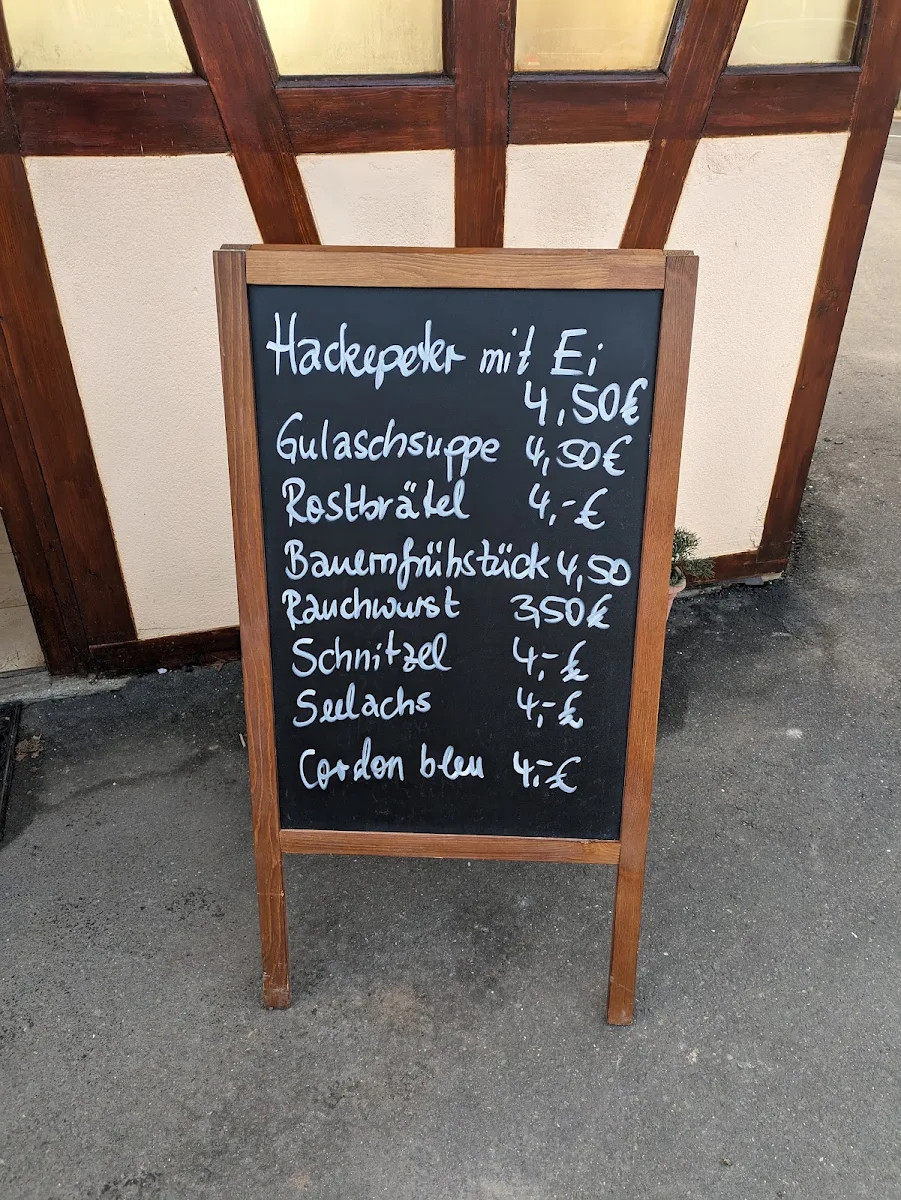 Hackepeter mit Ei
4,50€
Gulaschsuppe 4,50€
Rostbrätel 4,-€
Bauernfrühstück 4,50
Rauchwurst 3,50€
Schnitzel 4,-€
Seelachs 4,-€
Cordon bleu 4,-€